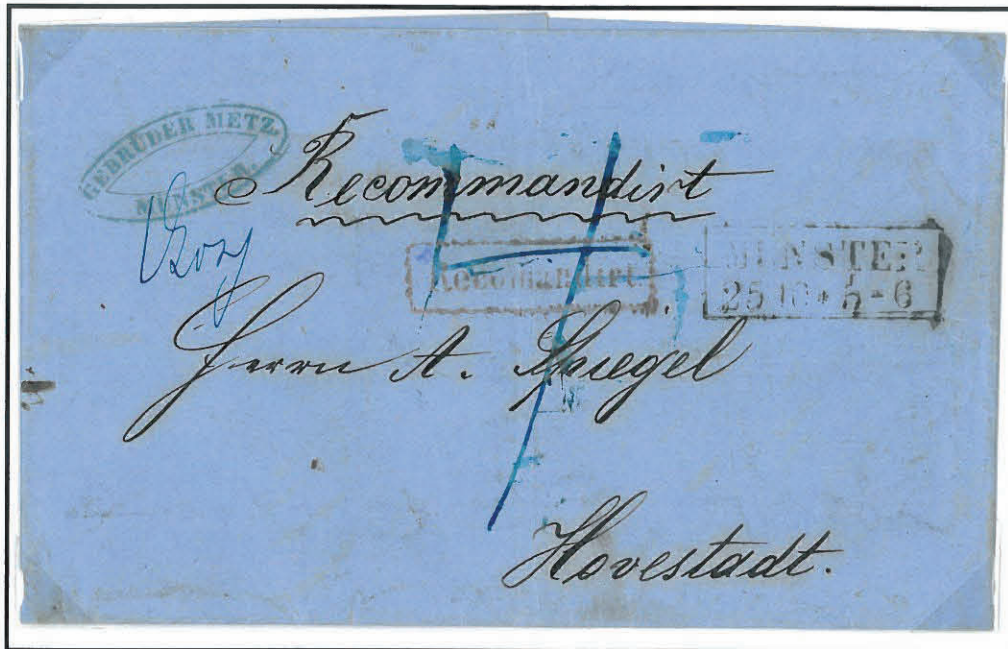 GEBRÜDER METZ.
MÜNSTER.
Recommandirt
Recomandirt.
MUNSTER
25 10 * 5-6
Herrn A. Spiegel
Hovestadt.